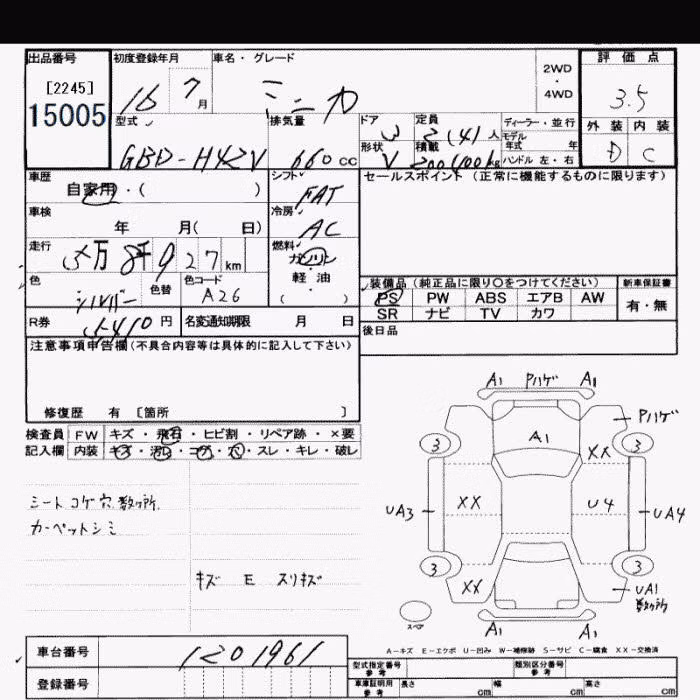 出品番号 初度登録年月 車名・グレード 2WD・4WD 評価点
[2245]
15005 16 7月 ミニカ 3.5
型式 排気量 ドア 定員 ディーラー・並行 外装 内装
GBD-H42V 660cc 3 2(4)人 モデル年式 年 D C
形状 積載 ハンドル 左・右
V 200(100)kg
車歴 シフト セールスポイント (正常に機能するものに限ります)
自家用・( ) FAT
車検 冷房
年 月( 日) AC
走行 燃料
万 千 9 2 7 km ガソリン
色 色替 色コード 軽油 装備品 (純正品に限り○をつけてください) 新車保証書
シルバー A26 ( ) PS PW ABS エアB AW 有・無
SR ナビ TV カワ
R券 5410円 名変通知期限 月 日 後日品
注意事項申告欄(不具合内容等は具体的に記入して下さい)
修復歴 有 [箇所 ]
検査員 FW キズ・飛石・ヒビ割・リペア跡・×要
記入欄 内装 キズ・汚レ・コゲ・穴・スレ・キレ・破レ
シート コゲ穴 数ヶ所.
カーペットシミ
キズ E スリキズ
A1 Pハゲ A1
Pハゲ
3 A1 XX 3
UA3 XX U4 UA4
3 XX 3
UA1
数ヶ所
スペア A1 A1
A-キズ E-エクボ U-凹み W-補修跡 S-サビ C-腐食 XX-交換済
車台番号 1201961 型式指定番号 参考 類別区分番号 参考
登録番号 車庫証明用 参考 長さ cm 幅 cm 高さ cm